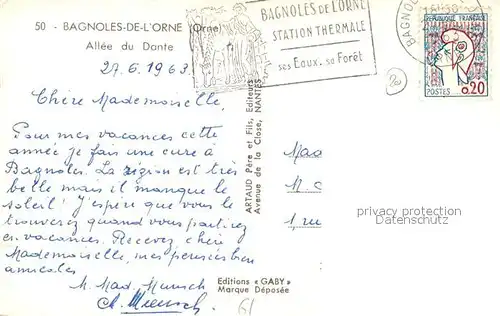 50 - BAGNOLES-DE-L'ORNE (Orne)
Allée du Dante
BAGNOLES de L'ORNE
STATION THERMALE
ses Eaux, sa Forêt
BAGNOL
RÉPUBLIQUE FRANÇAISE
POSTES 0,20
20
27.6.1963
Chère Mademoiselle,
Pour mes vacances cette
année je fais une cure à
Bagnoles. La région est très
belle mais il manque le
soleil! J'espère que vous le
trouverez quand vous partirez
en vacances. Recevez, chère
Mademoiselle, mes pensées bien
amicales
M. Mad. Munsch
ARTAUD Père et Fils, Editeurs
Avenue de la Close, NANTES
Mad
M. C
1, rue
privacy protection
Datenschutz
Editions « GABY »
Marque Déposée
61